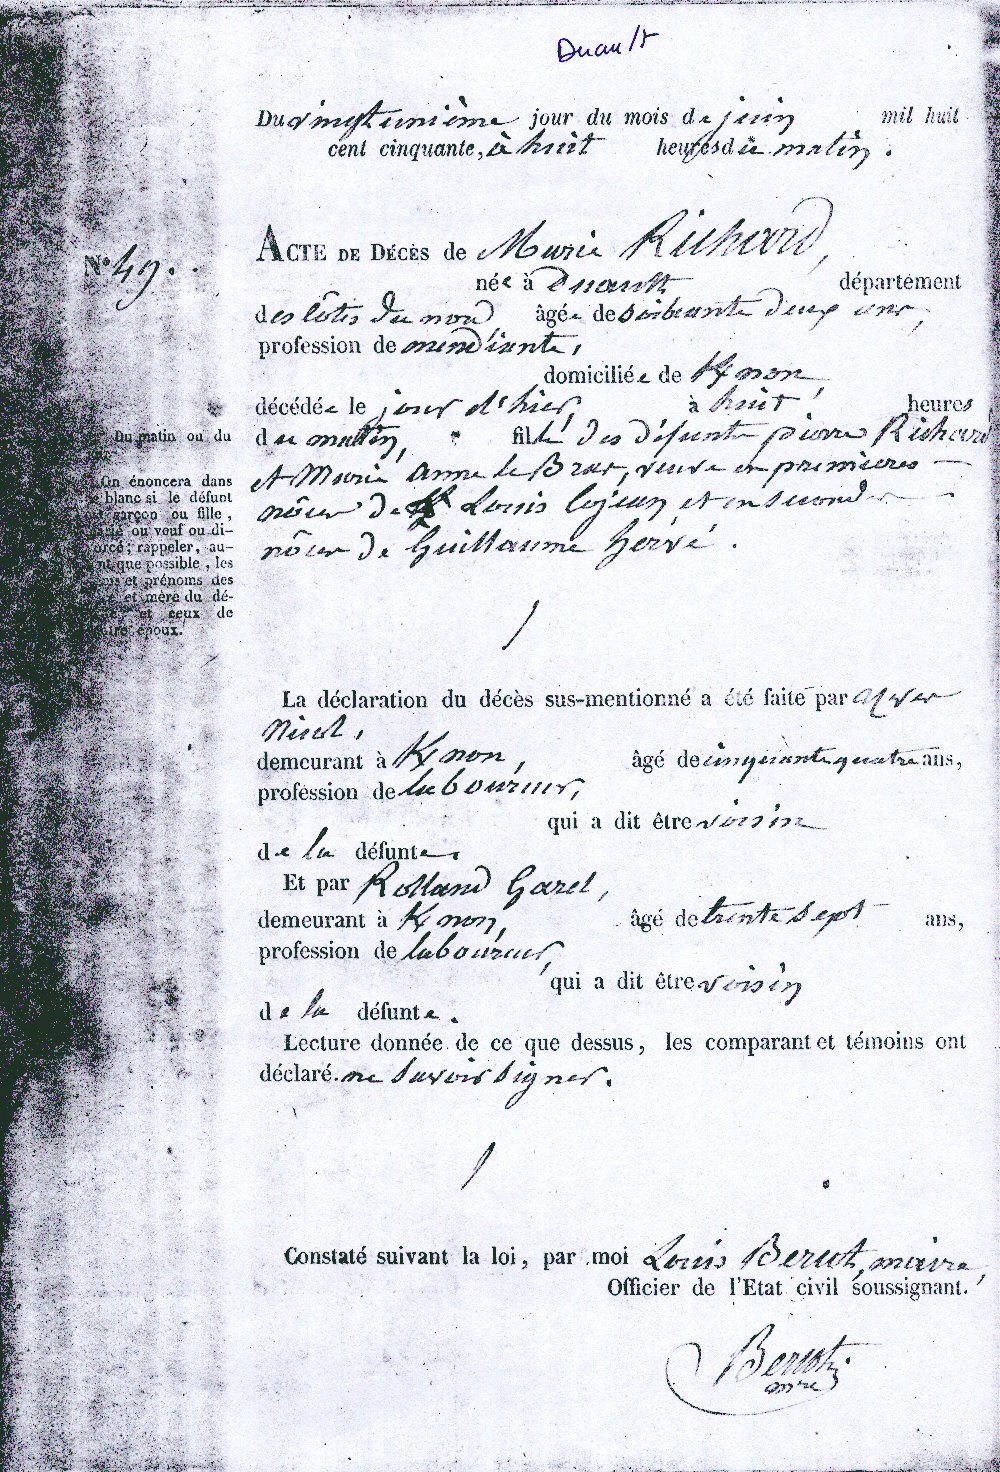 Duault
Du vingtunième jour du mois de juin mil huit
cent cinquante, à huit heures du matin.
ACTE DE DÉCÈS de Marie Richard,
N° 49.
née à Duault département
des Côtes du nord, âgée de soixante deux ans,
profession de mendiante,
domiciliée de K/non,
décédée le jour d'hier, à huit heures
du matin, fille des défunts pierre Richard
et Marie anne le Bras, veuve en premieres
nôces de Louis lejeun et en secondes
nôces de Guillaume hervé.
Du matin ou du
On énoncera dans
le blanc si le défunt
est garçon ou fille,
ou veuf ou di-
vorcé; rappeler, au-
tant que possible, les
noms et prénoms des
père et mère du dé-
et ceux de
époux.
La déclaration du décès sus-mentionné a été faite par
Nicol,
demeurant à K/non, âgé de cinquante quatre ans,
profession de laboureur,
qui a dit être voisin
de la défunte.
Et par Rolland Garel,
demeurant à K/non, âgé de trente sept ans,
profession de laboureur,
qui a dit être voisin
de la défunte.
Lecture donnée de ce que dessus, les comparant et témoins ont
déclaré ne savoir signer.
Constaté suivant la loi, par moi Louis Bercot, maire,
Officier de l'Etat civil soussignant.
Bercot
mre